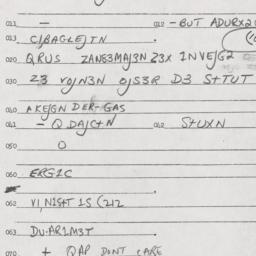 011 — 012 - BUT ADURX2
013 C/BAGLEJTN
020 QRUS ZANE3MAJ3N Z3X INVEJG2
030 Z3 VOJN3N OJS3R D3 STTUT
040 AKEJGN DER-GAS
041 - Q DAJCTN 042 STUXN
050 O
060 ERG1C
062 VI,NIST 1S (212
063 DU-AR1M3T
070 + QAP DONT CARE